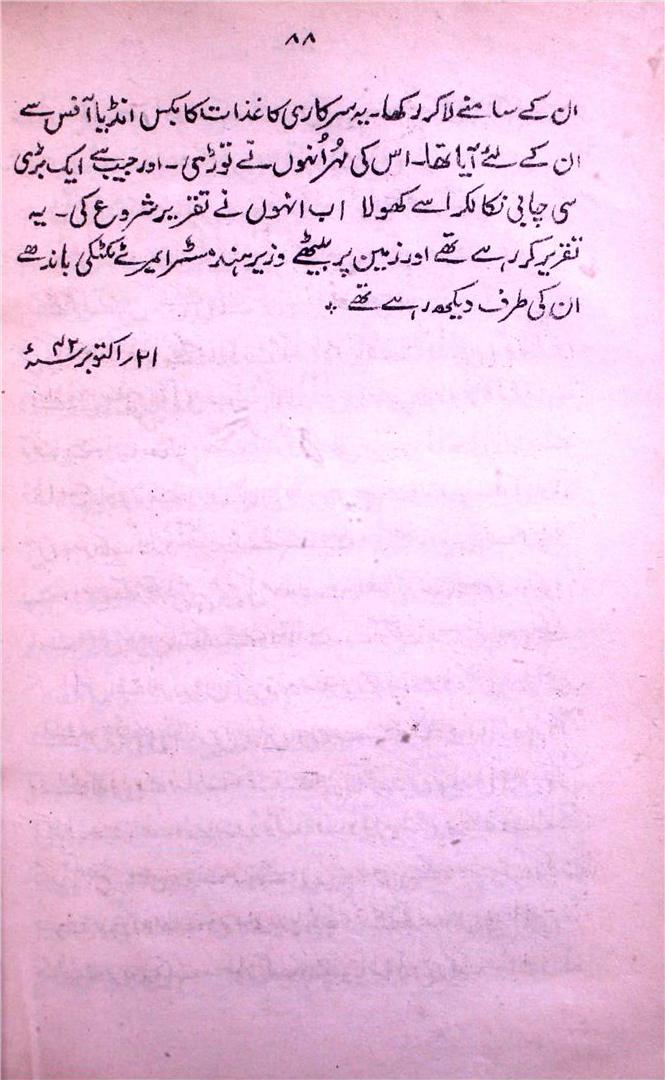 ۸۸
ان کے سامنے لاکر رکھا۔ یہ سرکاری کاغذات کا بکس انڈیا آفس سے
ان کے لئے آیا تھا۔ اس کی مُہر اُنہوں نے توڑی۔ اور جیب سے ایک بڑی
سی چابی نکالکر اسے کھولا اب انہوں نے تقریر شروع کی۔ یہ
تقریر کر رہے تھے اور زمین پر بیٹھے وزیر ہند مسٹر ایمرے ٹکٹکی باندھے
ان کی طرف دیکھ رہے تھے ٭
۲۱؍ اکتوبر ۴۲ء